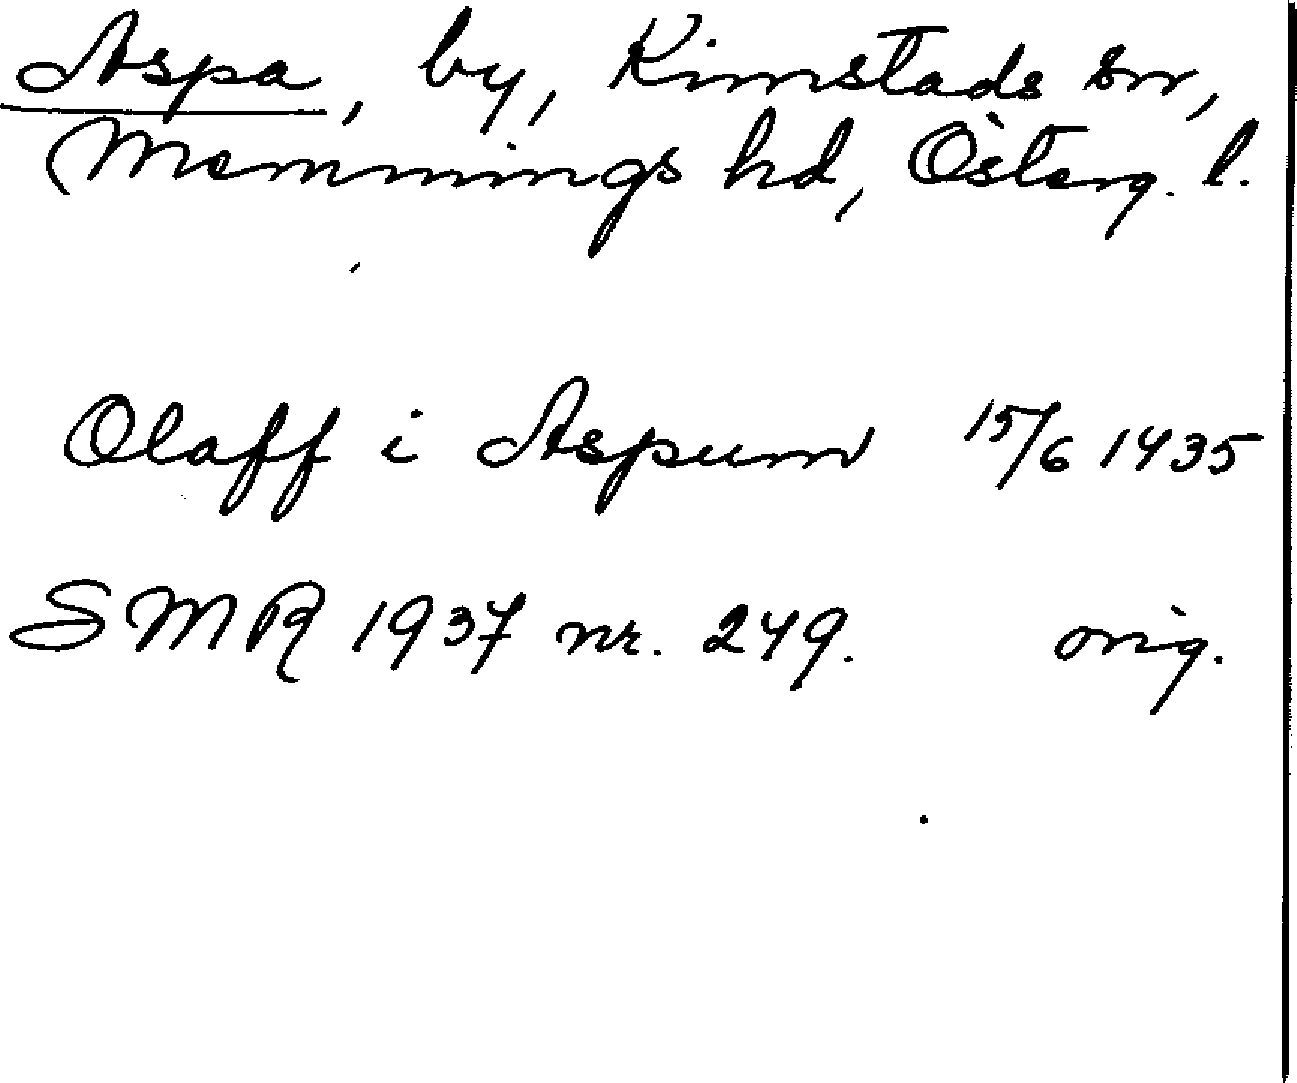 Aspa, by, Kimstads sn,
Memmings hd, Österg. l.
Olaff i Aspum 15/6 1435
SMR 1937 nr. 249. orig.